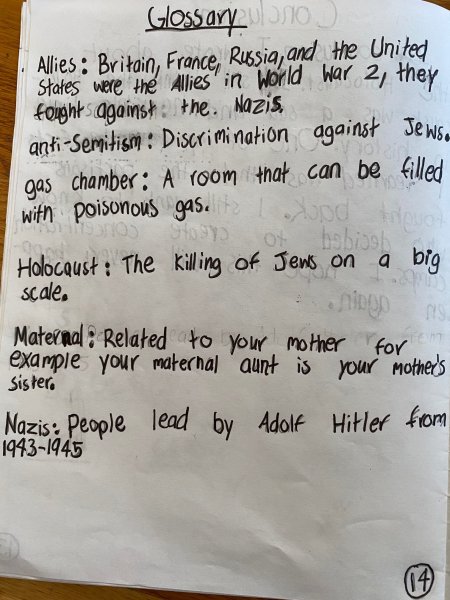 Glossary
Allies: Britain, France, Russia, and the United
States were the Allies in World War 2, they
fought against the Nazis.
anti-Semitism: Discrimination against Jews.
gas chamber: A room that can be filled
with poisonous gas.
Holocaust: The killing of Jews on a big
scale.
Maternal: Related to your mother for
example your maternal aunt is your mother's
sister.
Nazis: People lead by Adolf Hitler from
1943-1945
14